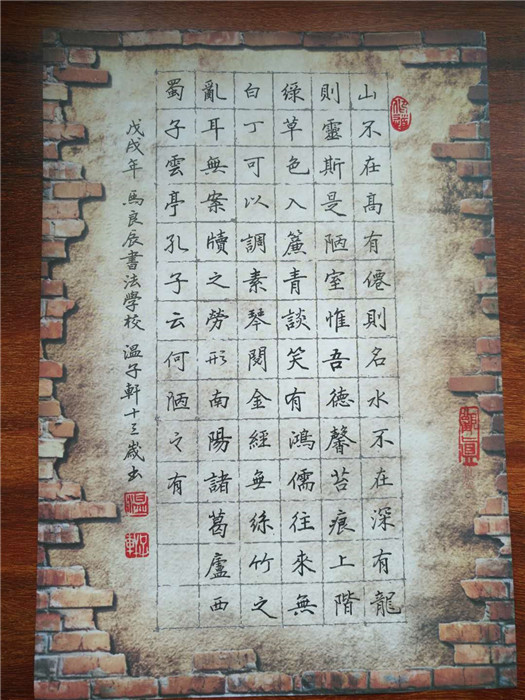 山不在髙有僊則名水不在深有龍
則靈斯是陋室惟吾德馨苔痕上階
綠草色入簾青談笑有鴻儒往來無
白丁可以調素琴閱金經無絲竹之
亂耳無案牘之勞形南陽諸葛廬西
蜀子雲亭孔子云何陋之有
戊戌年 馬良辰書法學校 溫子軒十三歲书